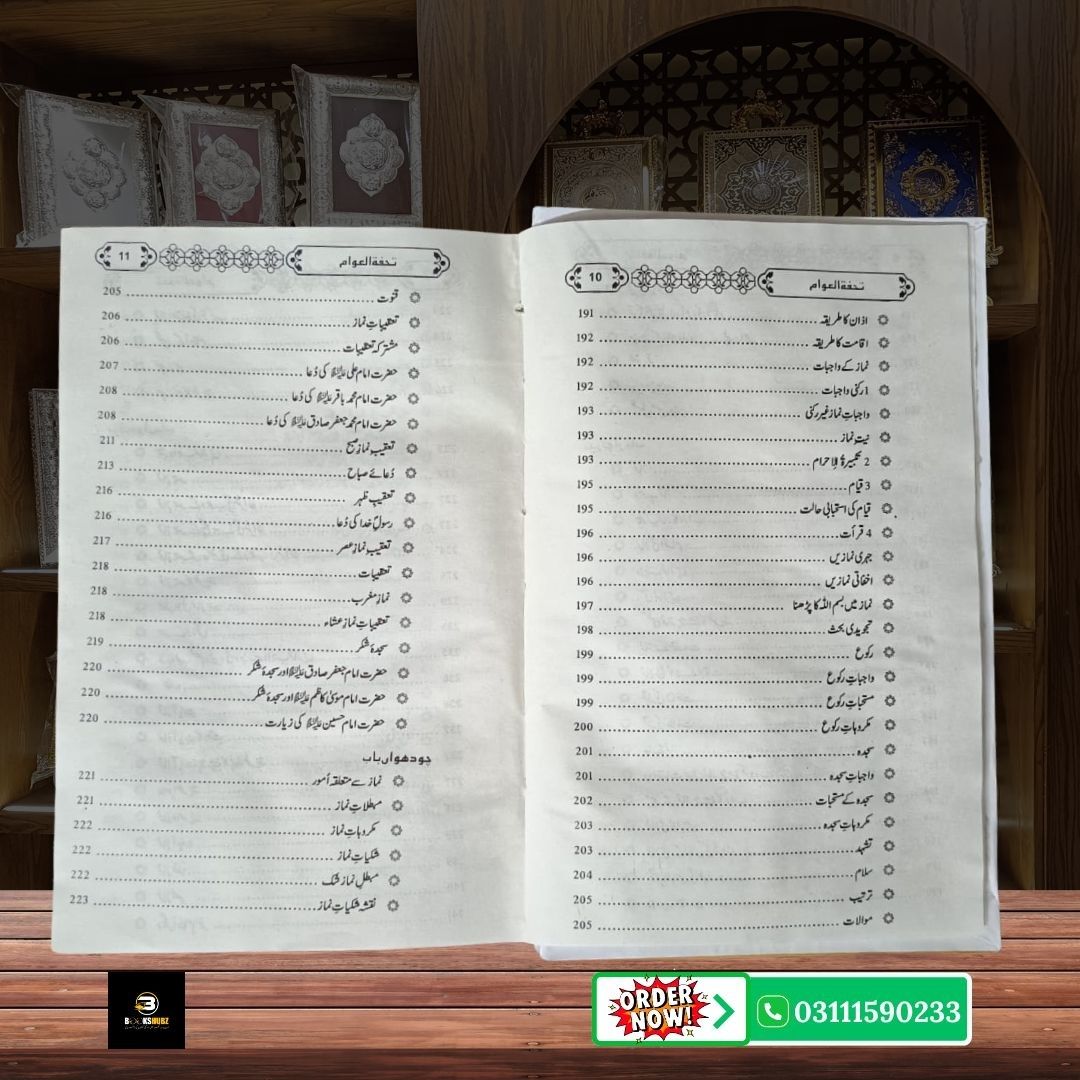 تحفۃ العوام 10
اذان کا طریقہ 191
اقامت کا طریقہ 192
نماز کے واجبات 192
1 رکنی واجبات 192
واجباتِ نماز غیر رکنی 193
نیتِ نماز 193
2 تکبیرۃ الاحرام 193
3 قیام 195
قیام کی استحبابی حالت 195
4 قرأت 196
جہری نمازیں 196
اخفاتی نمازیں 196
نماز میں بسم اللہ کا پڑھنا 197
تجویدی بحث 198
رکوع 199
واجباتِ رکوع 199
مستحباتِ رکوع 199
مکروہاتِ رکوع 200
سجدہ 201
واجباتِ سجدہ 201
سجدہ کے مستحبات 202
مکروہاتِ سجدہ 203
تشہد 203
سلام 204
ترتیب 205
موالات 205
تحفۃ العوام 11
قنوت 205
تعقیباتِ نماز 206
مشترکہ تعقیبات 206
حضرت امام علی علیہ السلام کی دُعا 207
حضرت امام محمد باقر علیہ السلام کی دُعا 208
حضرت امام محمد جعفر صادق علیہ السلام کی دُعا 208
تعقیبِ نمازِ صبح 211
دُعائے صباح 213
تعقیبِ ظہر 216
رسولِ خدا کی دُعا 216
تعقیبِ نمازِ عصر 217
تعقیبات 218
نمازِ مغرب 218
تعقیباتِ نمازِ عشاء 218
سجدۂ شکر 219
حضرت امام جعفر صادق علیہ السلام اور سجدۂ شکر 220
حضرت امام موسیٰ کاظم علیہ السلام اور سجدۂ شکر 220
حضرت امام حسین علیہ السلام کی زیارت 220
چودھواں باب
نماز سے متعلقہ اُمور 221
مبطلاتِ نماز 221
مکروہاتِ نماز 222
شکیاتِ نماز 222
مبطلِ نماز شک 222
نقشہ شکیاتِ نماز 223
BOOKSHUBZ
ORDER NOW!
03111590233